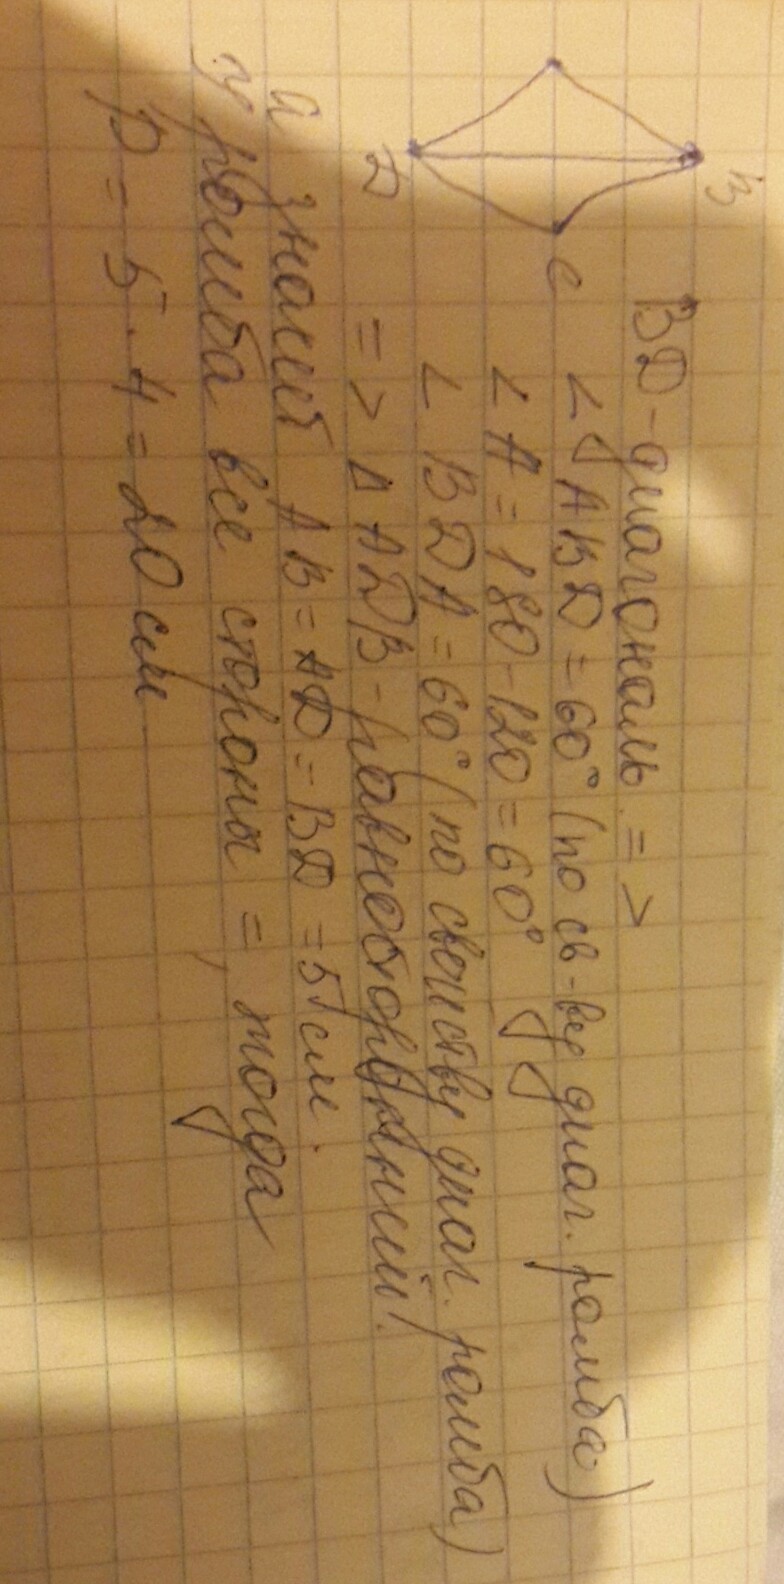 В
С
D
BD - диагональ. =>
∠ ABD = 60° (по св-ву диаг. ромба)
∠ A = 180 - 120 = 60°
∠ BDA = 60° (по свойству диаг. ромба)
=> Δ ADB - равносторонний!
а значит AB = AD = BD = 5 см.
у ромба все стороны =, тогда
P = 5 · 4 = 20 см